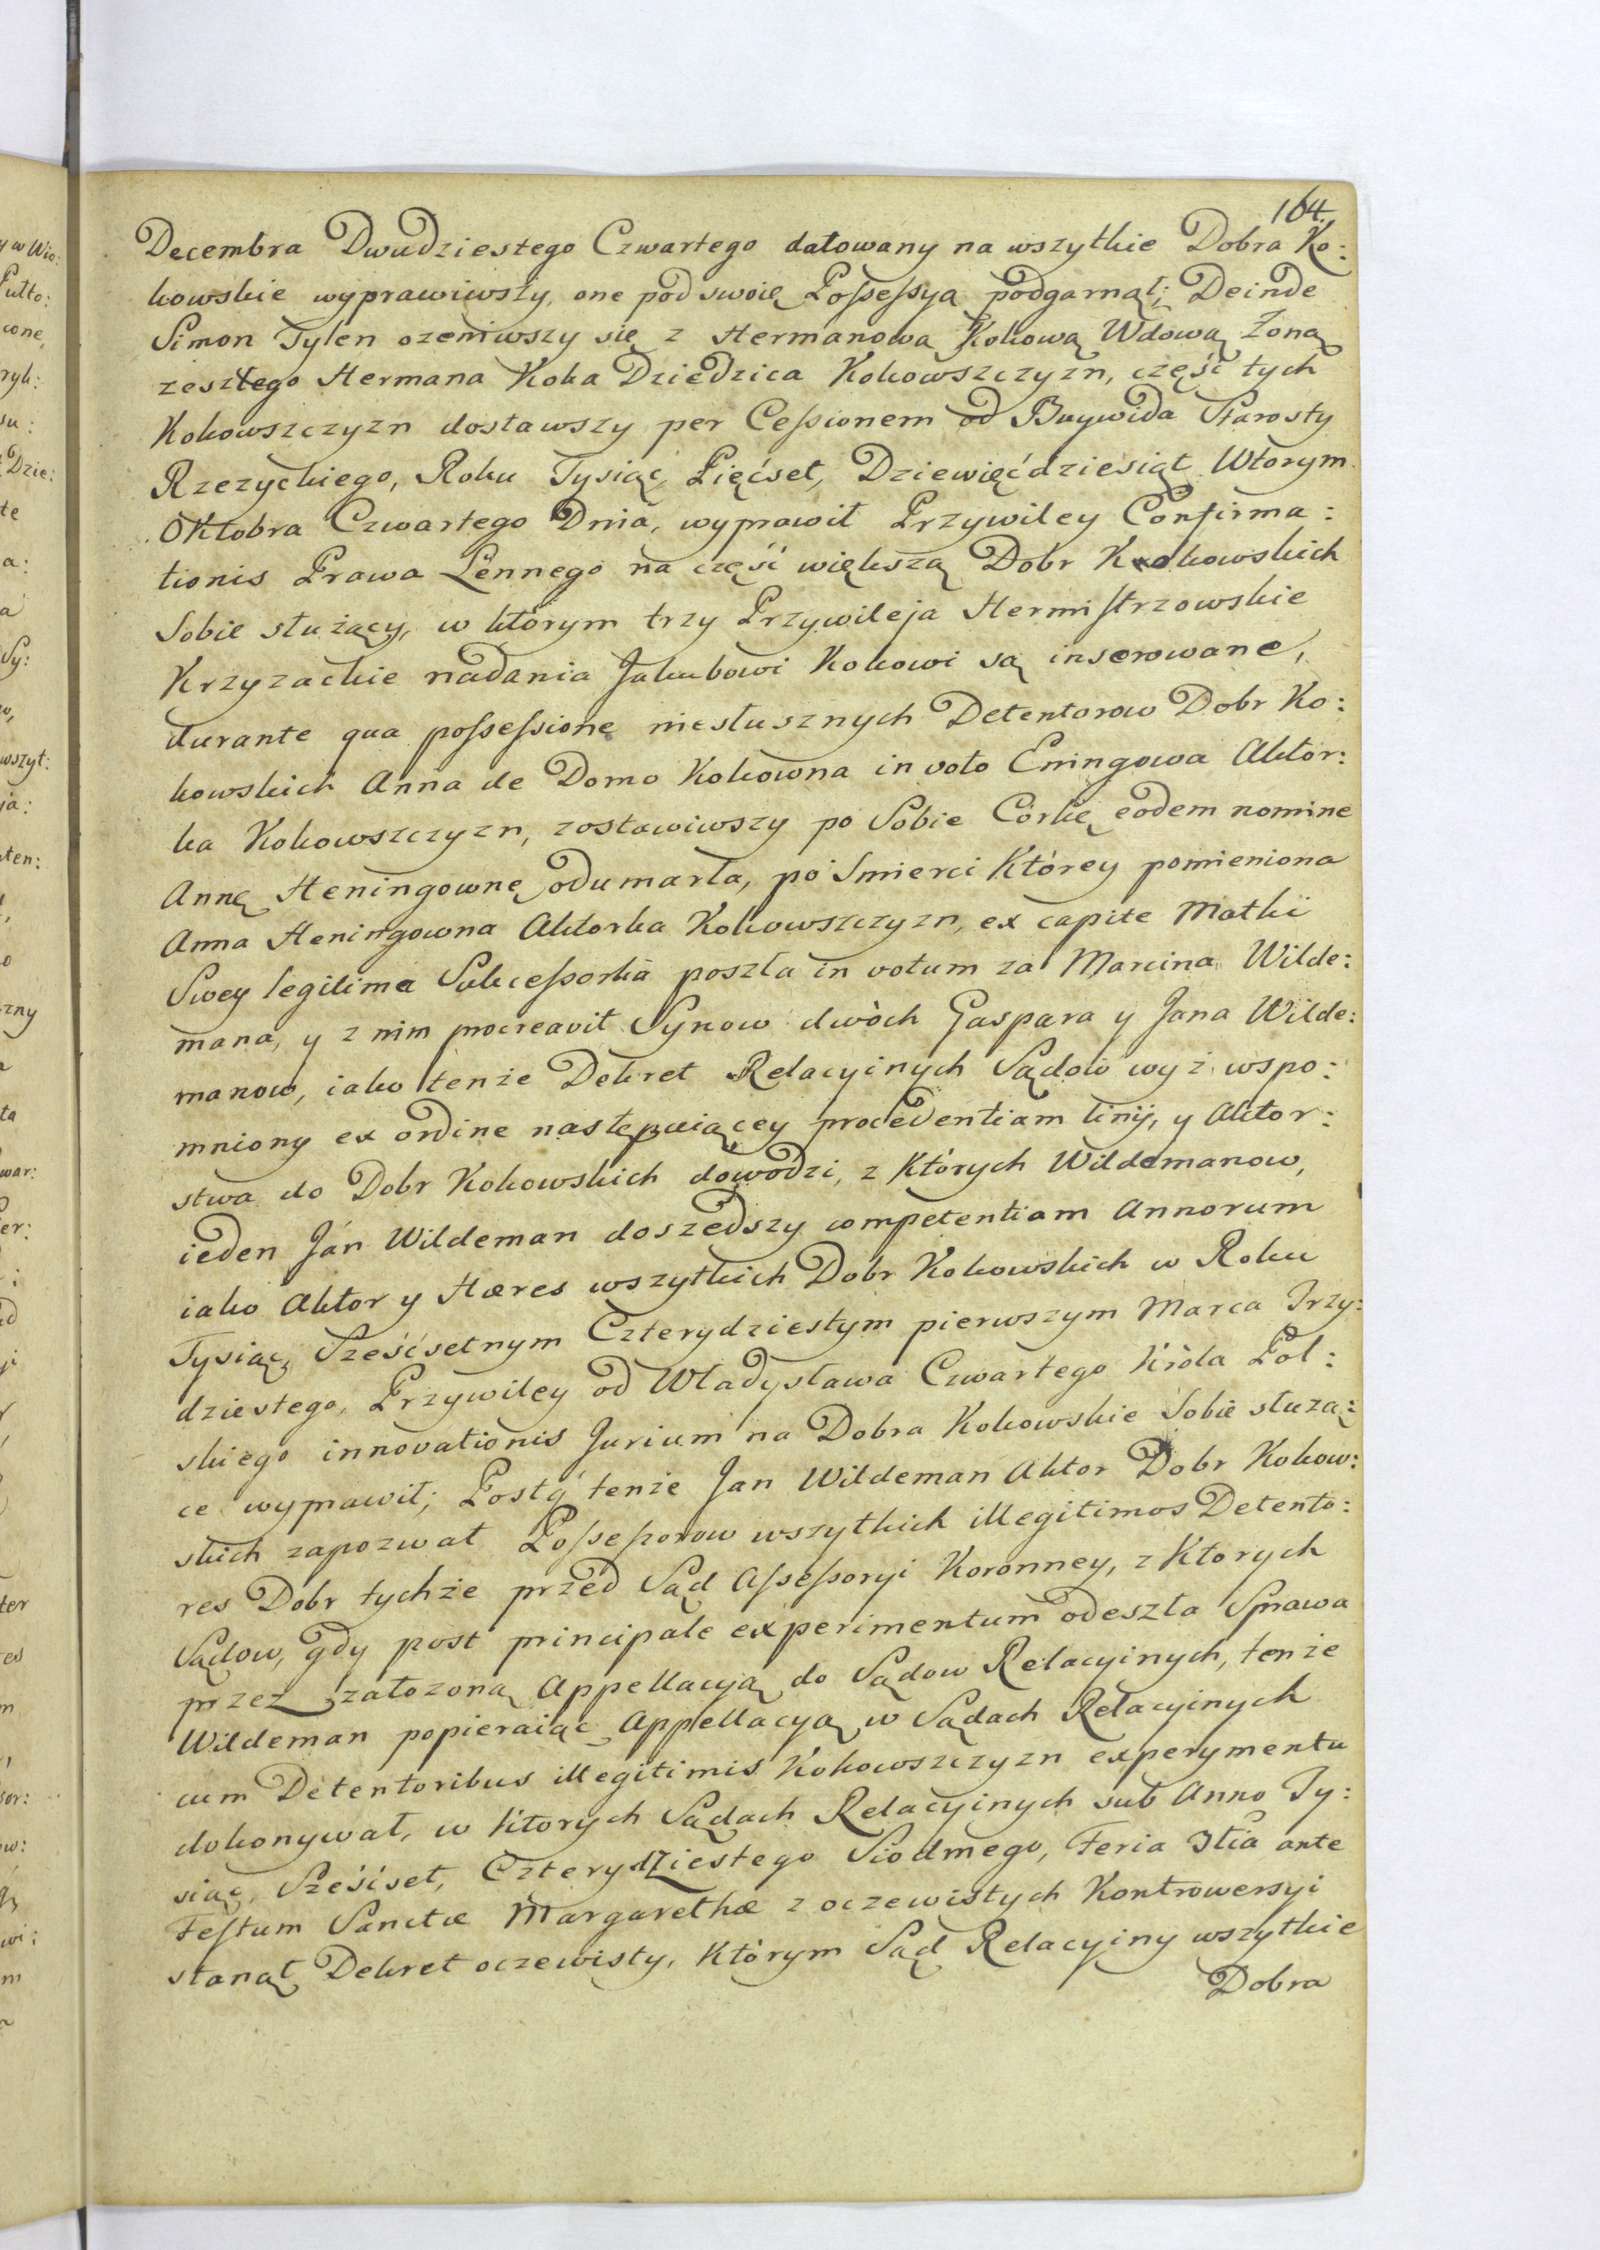 164.
Decembra Dwudziestego Czwartego datowany na wszytkie Dobra Ko:
kowskie wyprawiwszy, one pod swoię Poſseſsyą podgarnął; Deinde
Simon Tylen ozeniwszy się z Hermanową Kokową Wdową Zoną
zeszłego Hermana Koka Dziedzica Kokowszczyzn, część tych
Kokowszczyzn dostawszy per Ceſsionem od Buywida Starosty
Rzezyckiego, Roku Tysiąc, Pięćset, Dziewięćdziesiąt Wtorym
Oktobra Czwartego Dnia, wyprawił Przywiley Confirma:
tionis Prawa Lennego na część większą Dobr Kokowskich
Sobie służący, w którym trzy Przywileja Hermiſtrzowskie
Krzyzackie nadania Jakubowi Kokowi są inserowane,
durante qua poſseſsione niesłusznych Detentorow Dobr Ko:
kowskich Anna de Domo Kokowna in voto Eningowa Aktor:
ka Kokowszczyzn, zostawiwszy po Sobie Córkę eodem nomine
Annę Heningownę odumarła, po Smierci Którey pomieniona
Anna Heningowna Aktorka Kokowszczyzn, ex capite Matki
Swey legitima Sukceſsorka poszła in votum za Marcina Wilde:
mana, y z nim procreavit Synow dwòch Gaspara y Jana Wilde:
manow, iako tenże Dekret Relacyinych Sądow wyż wspo:
mniony ex ordine następuiącey procedentiam linij, y Aktor:
stwa do Dobr Kokowskich dowodzi, z Których Wildemanow,
ieden Ján Wildeman doszedszy competentiam Annorum
iako Aktor y Hæres wszytkich Dobr Kokowskich w Roku
Tysiąc, Sześćsetnym Czterydziestym pierwszym Marca Trzy:
dziestego, Przywiley od Władysława Czwartego Króla Pol:
skiego innovationis Jurium na Dobra Kokowskie Sobie słuzą:
ce wyprawił; Postq́ tenże Jan Wildeman Aktor Dobr Kokow:
skich zapozwał Poſseſsorow wszytkich illegitimos Detento:
res Dobr tychże przed Sąd Aſseſsoryi Koronney, z Ktorych
Sądow, gdy post principale experimentum odeszła Sprawa
przez założoną Appellacyą do Sądow Relacyinych, tenże
Wildeman popieraiąc Appellacyą w Sądach Relacyinych
cum Detentoribus illegitimis Kokowszczyzn experymentu
dokonywał, w Ktorych Sądach Relacyinych sub Anno Ty:
siąc, Sześćset, Czterydziestego Siodmego, Feria 3tia ante
Feſtum Sanctæ Margarethæ z oczewistych Kontrowersyi
stanął Dekret oczewisty, Którym Sąd Relacyiny wszytkie
Dobra